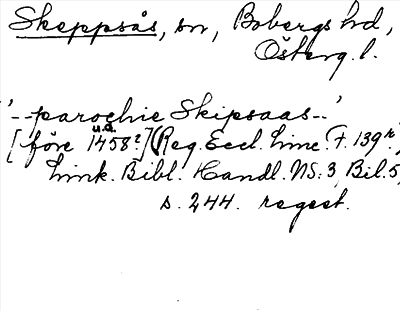 Skeppsås, sn, Bobergs hd,
Österg. l.
'--parochie Skipsaas--'
u.å.
[före 1458?] (Reg. Eccl. Linc. F. 139 r,
Link. Bibl. Handl. NS: 3, Bil. 5,
s. 244. regest.